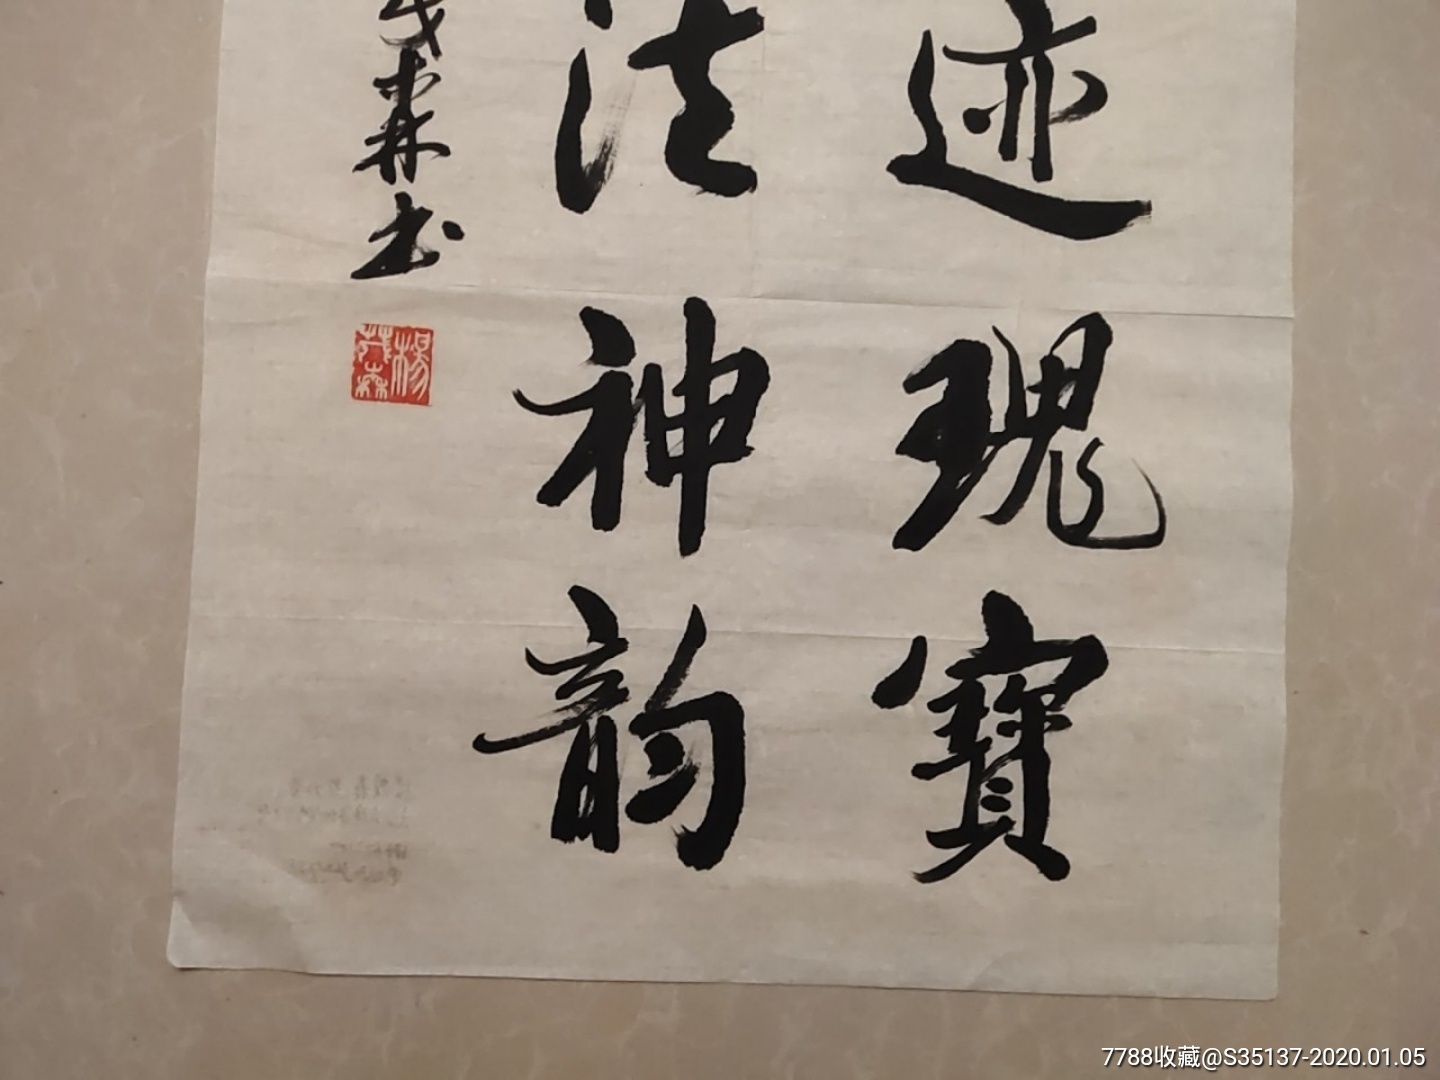 迹瑰寶
法神韵
茂森书
杨茂森
7788收藏@S35137-2020.01.05